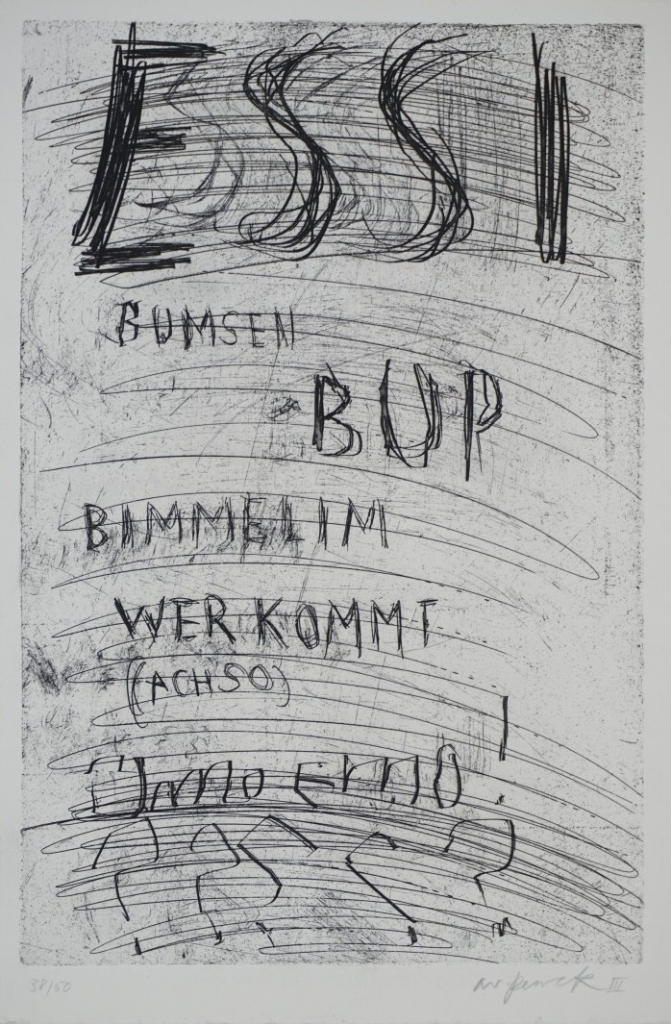 ESSI
BUMSEN
BUP
BIMMELIM
WER KOMMT
(ACHSO)
38/50
ar. penck III